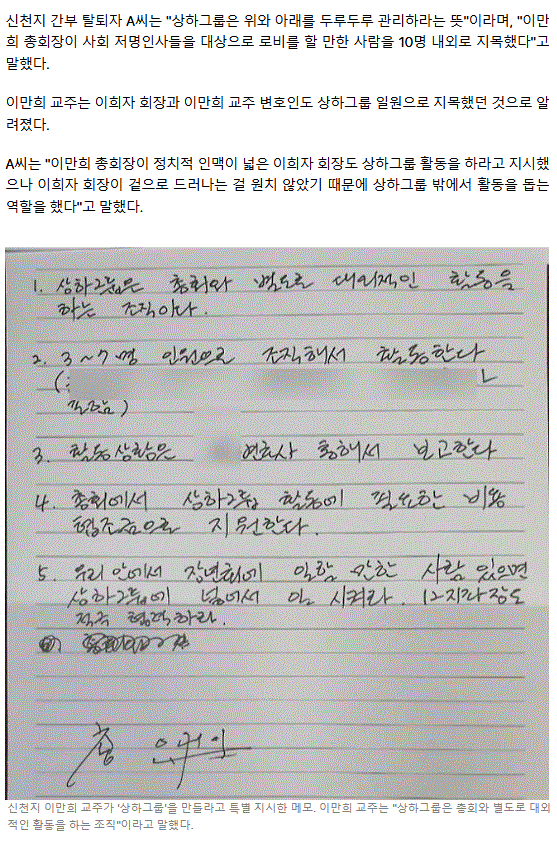 신천지 간부 탈퇴자 A씨는 "상하그룹은 위와 아래를 두루두루 관리하라는 뜻"이라며, "이만
희 총회장이 사회 저명인사들을 대상으로 로비를 할 만한 사람을 10명 내외로 지목했다"고
말했다.
이만희 교주는 이희자 회장과 이만희 교주 변호인도 상하그룹 일원으로 지목했던 것으로 알
려졌다.
A씨는 "이만희 총회장이 정치적 인맥이 넓은 이희자 회장도 상하그룹 활동을 하라고 지시했
으나 이희자 회장이 겉으로 드러나는 걸 원치 않았기 때문에 상하그룹 밖에서 활동을 돕는
역할을 했다"고 말했다.
1. 상하그룹은 총회와 별도로 대외적인 활동을
하는 조직이다.
2. 3~7명 인원으로 조직해서 활동한다
(:
)
3. 활동상황은 변호사 통해서 보고한다
4. 총회에서 상하그룹 활동에 필요한 비용
협조금으로 지원한다.
5. 우리 안에서 장년회에 일할 만한 사람 있으면
상하그룹에 넣어서 일 시켜라. 12지파장도
적극 협력하라.
총
신천지 이만희 교주가 '상하그룹'을 만들라고 특별 지시한 메모. 이만희 교주는 "상하그룹은 총회와 별도로 대외
적인 활동을 하는 조직"이라고 말했다.